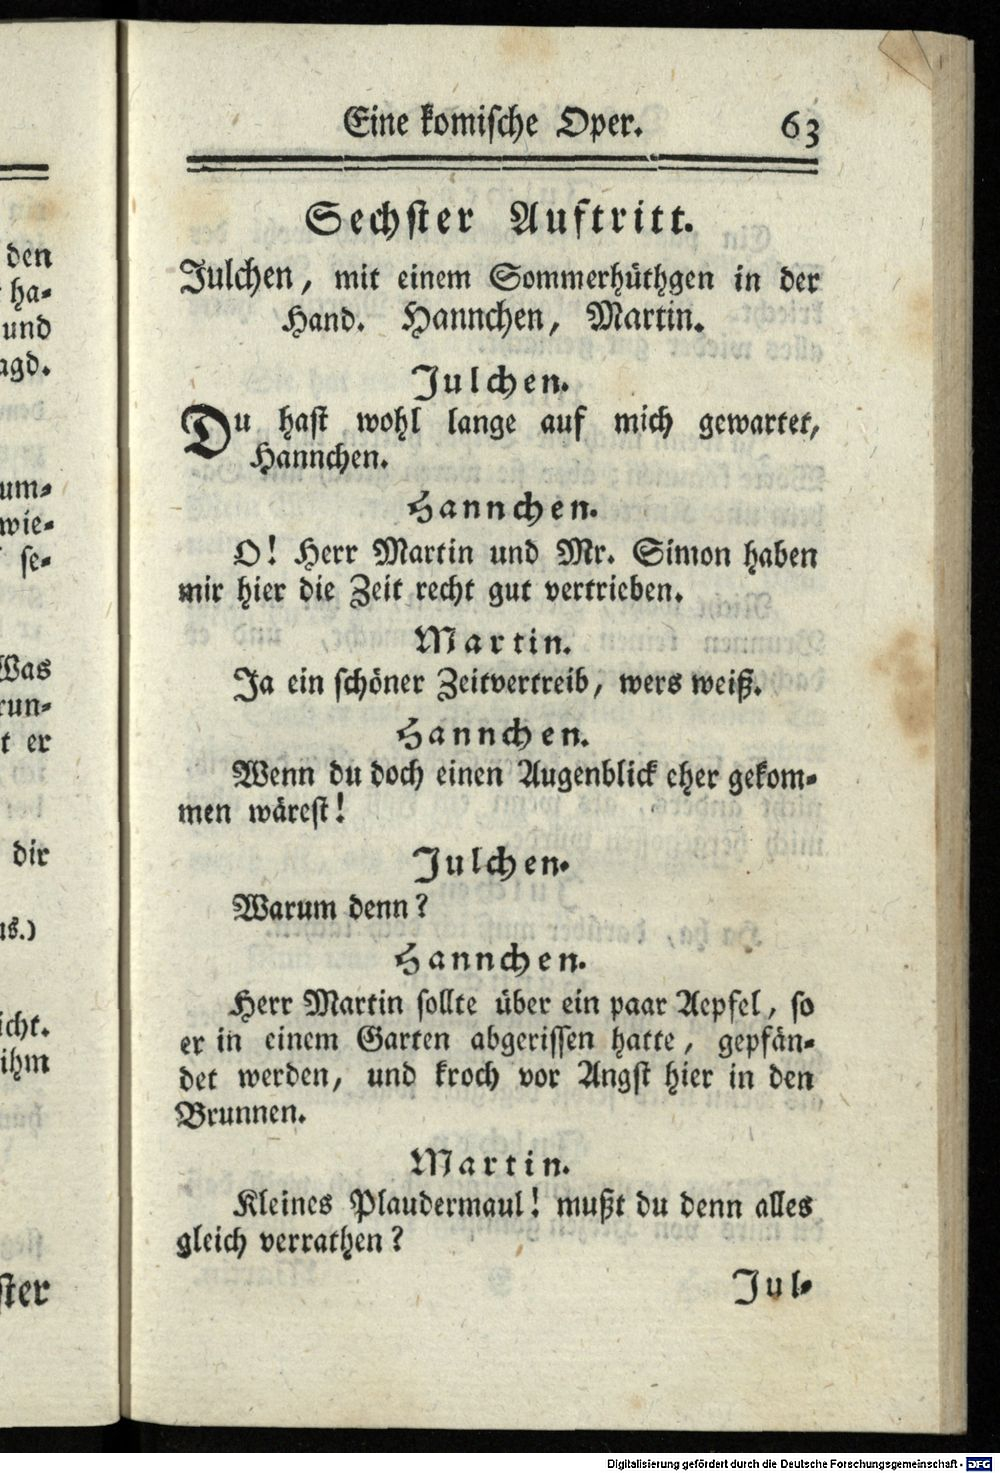 den
ha-
und
agd.
um-
wie-
se-
Was
run-
t er
dir
us.)
icht.
ihm
ster
Eine komische Oper. 63
Sechster Auftritt.
Julchen, mit einem Sommerhüthgen in der
Hand. Hannchen, Martin.
Julchen.
Du hast wohl lange auf mich gewartet,
Hannchen.
Hannchen.
O! Herr Martin und Mr. Simon haben
mir hier die Zeit recht gut vertrieben.
Martin.
Ja ein schöner Zeitvertreib, wers weiß.
Hannchen.
Wenn du doch einen Augenblick eher gekom-
men wärest!
Julchen.
Warum denn?
Hannchen.
Herr Martin sollte über ein paar Aepfel, so
er in einem Garten abgerissen hatte, gepfän-
det werden, und kroch vor Angst hier in den
Brunnen.
Martin.
Kleines Plaudermaul! mußt du denn alles
gleich verrathen?
Jul-
Digitalisierung gefördert durch die Deutsche Forschungsgemeinschaft - DFG